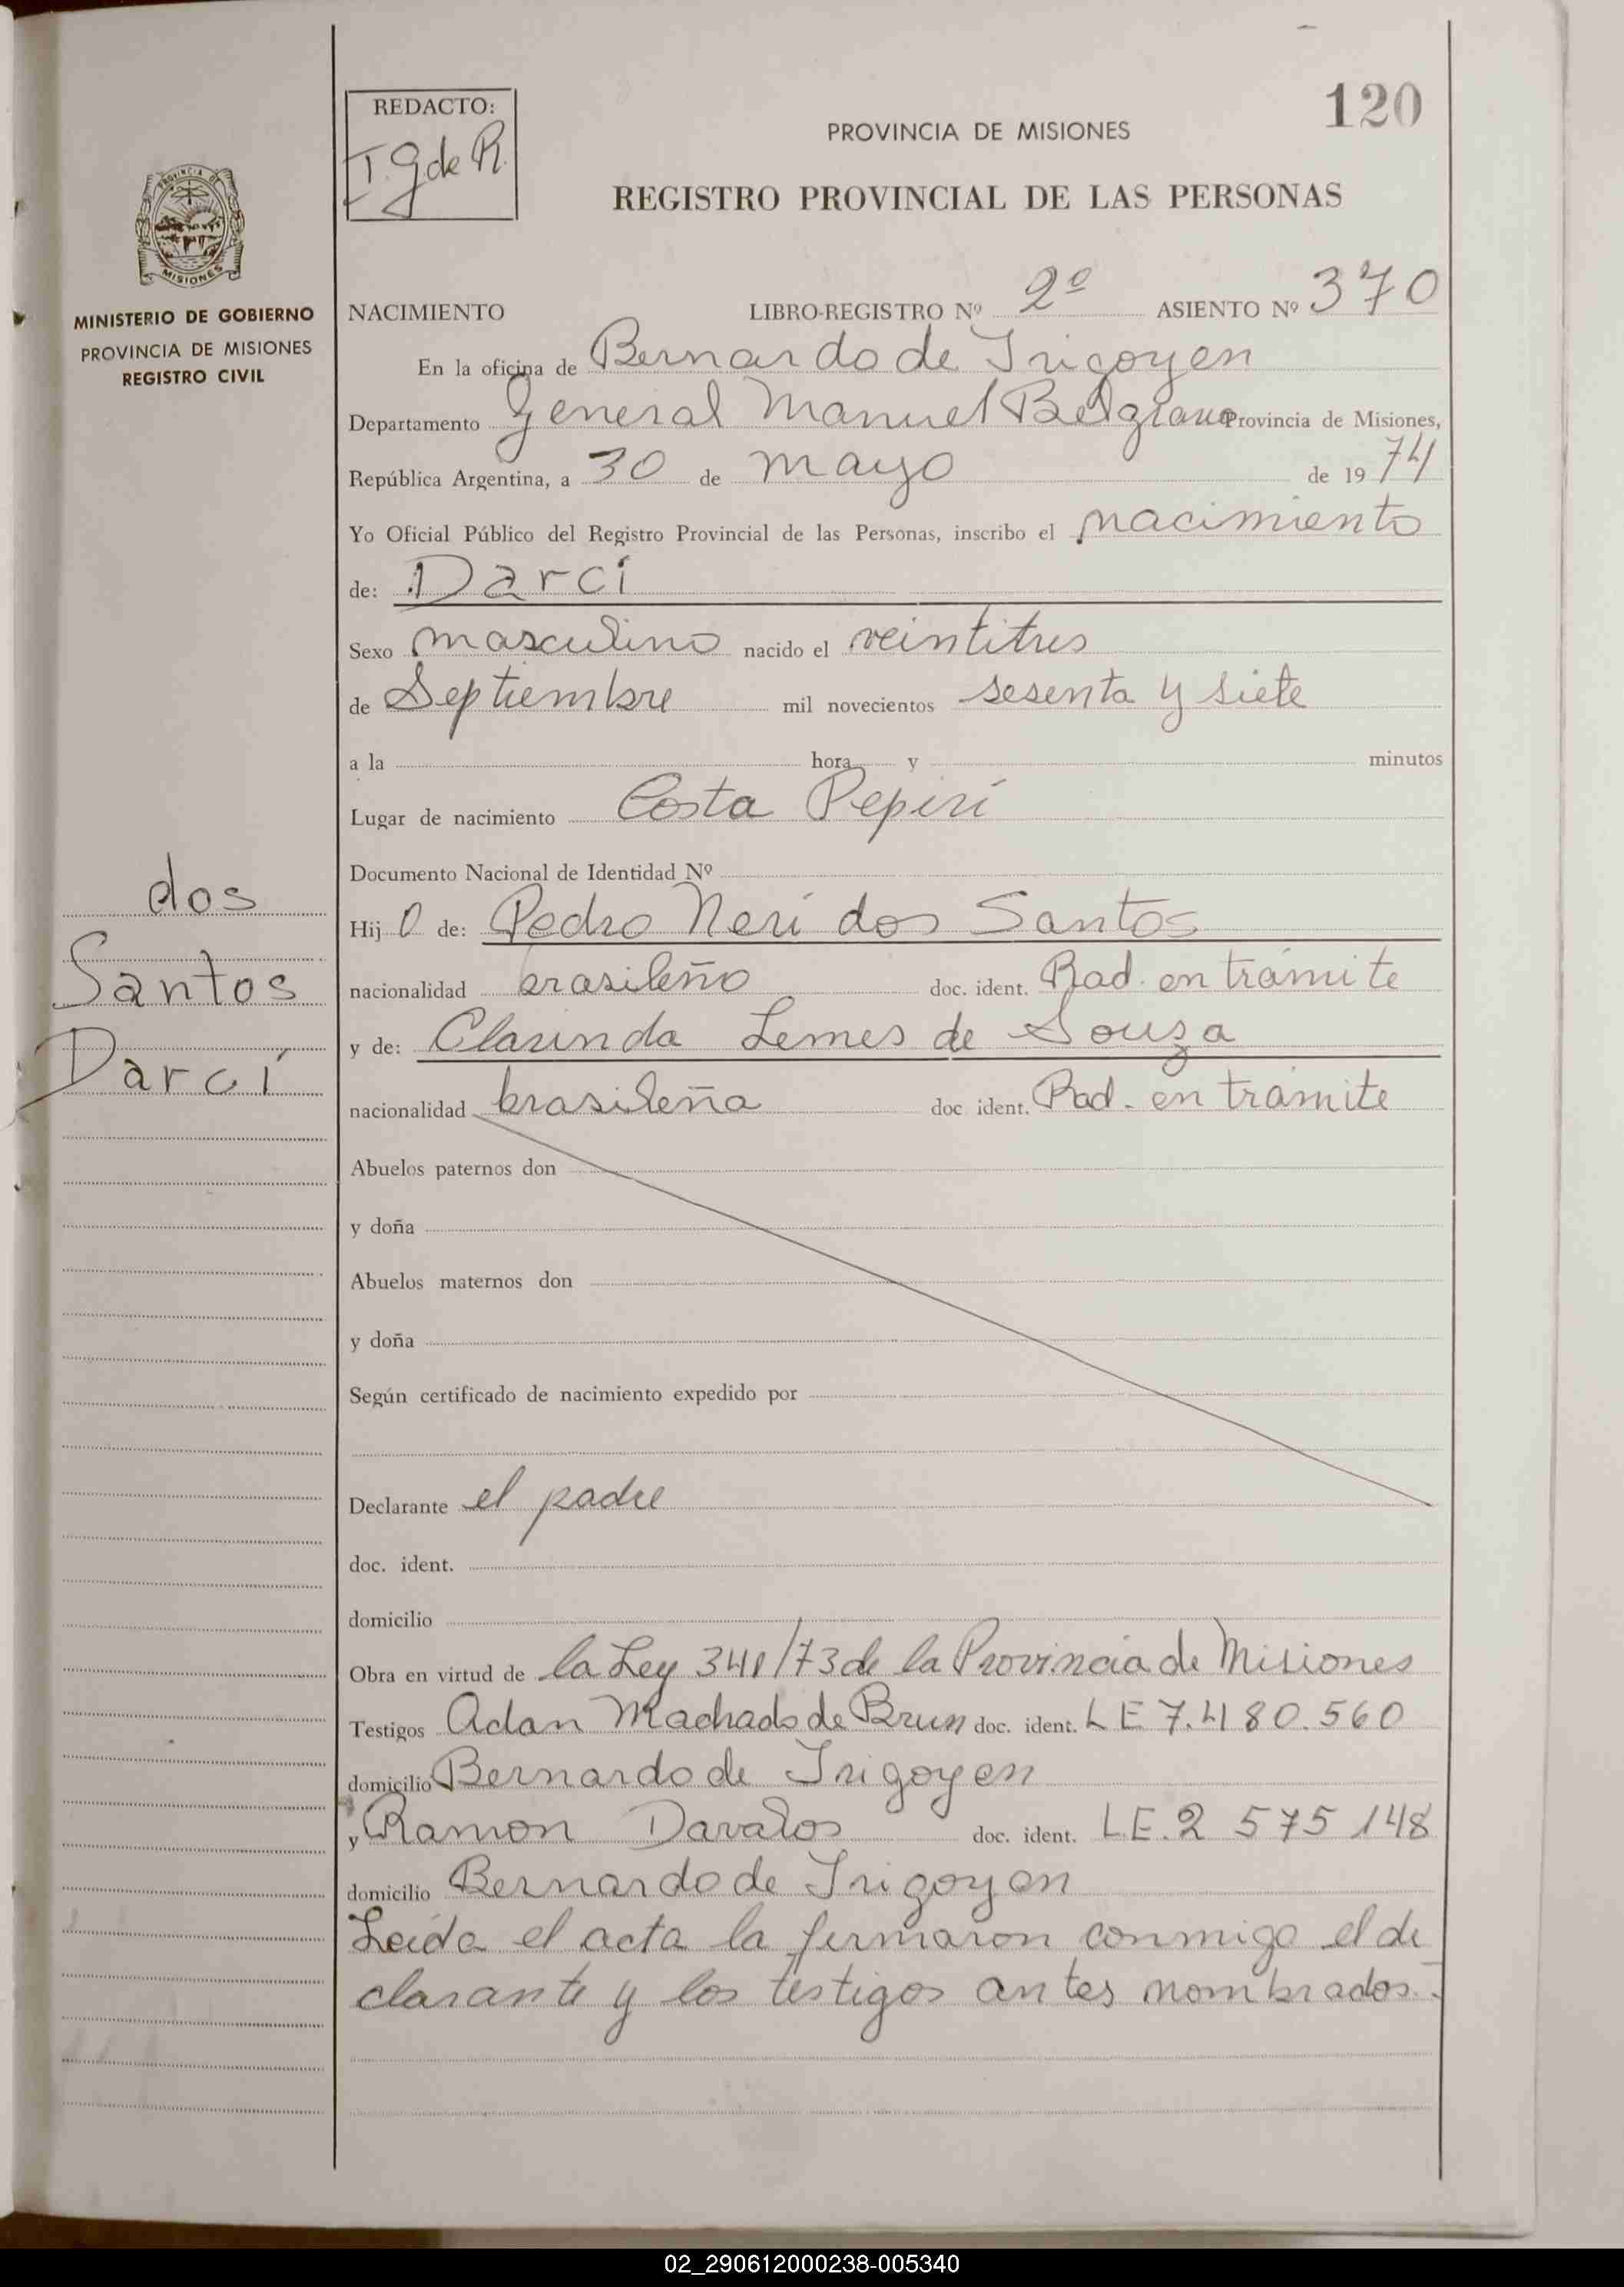 120
REDACTO:
I. G de R.
PROVINCIA DE MISIONES
REGISTRO PROVINCIAL DE LAS PERSONAS
PROVINCIA DE
MISIONES
MINISTERIO DE GOBIERNO
PROVINCIA DE MISIONES
REGISTRO CIVIL
NACIMIENTO LIBRO-REGISTRO Nº 2º ASIENTO Nº 370
En la oficina de Bernardo de Irigoyen
Departamento General Manuel Belgrano Provincia de Misiones,
República Argentina, a 30 de mayo de 1974
Yo Oficial Público del Registro Provincial de las Personas, inscribo el nacimiento
de: Darcí
Sexo masculino nacido el veintitres
de Septiembre mil novecientos sesenta y siete
a la hora y minutos
Lugar de nacimiento Costa Pepirí
Documento Nacional de Identidad Nº
dos
Santos
Darcí
Hijo de: Pedro Neri dos Santos
nacionalidad brasileño doc. ident. Rad. en trámite
y de: Clarinda Lemes de Souza
nacionalidad brasileña doc ident. Rad. en trámite
Abuelos paternos don
y doña
Abuelos maternos don
y doña
Según certificado de nacimiento expedido por
Declarante el padre
doc. ident.
domicilio
Obra en virtud de la Ley 341/73 de la Provincia de Misiones
Testigos Adan Machado de Brun doc. ident. LE 7.480.560
domicilio Bernardo de Irigoyen
y Ramon Davalos doc. ident. LE.2 575 148
domicilio Bernardo de Irigoyen
Leída el acta la firmaron conmigo el de
clarante y los testigos antes nombrados.-
02_290612000238-005340